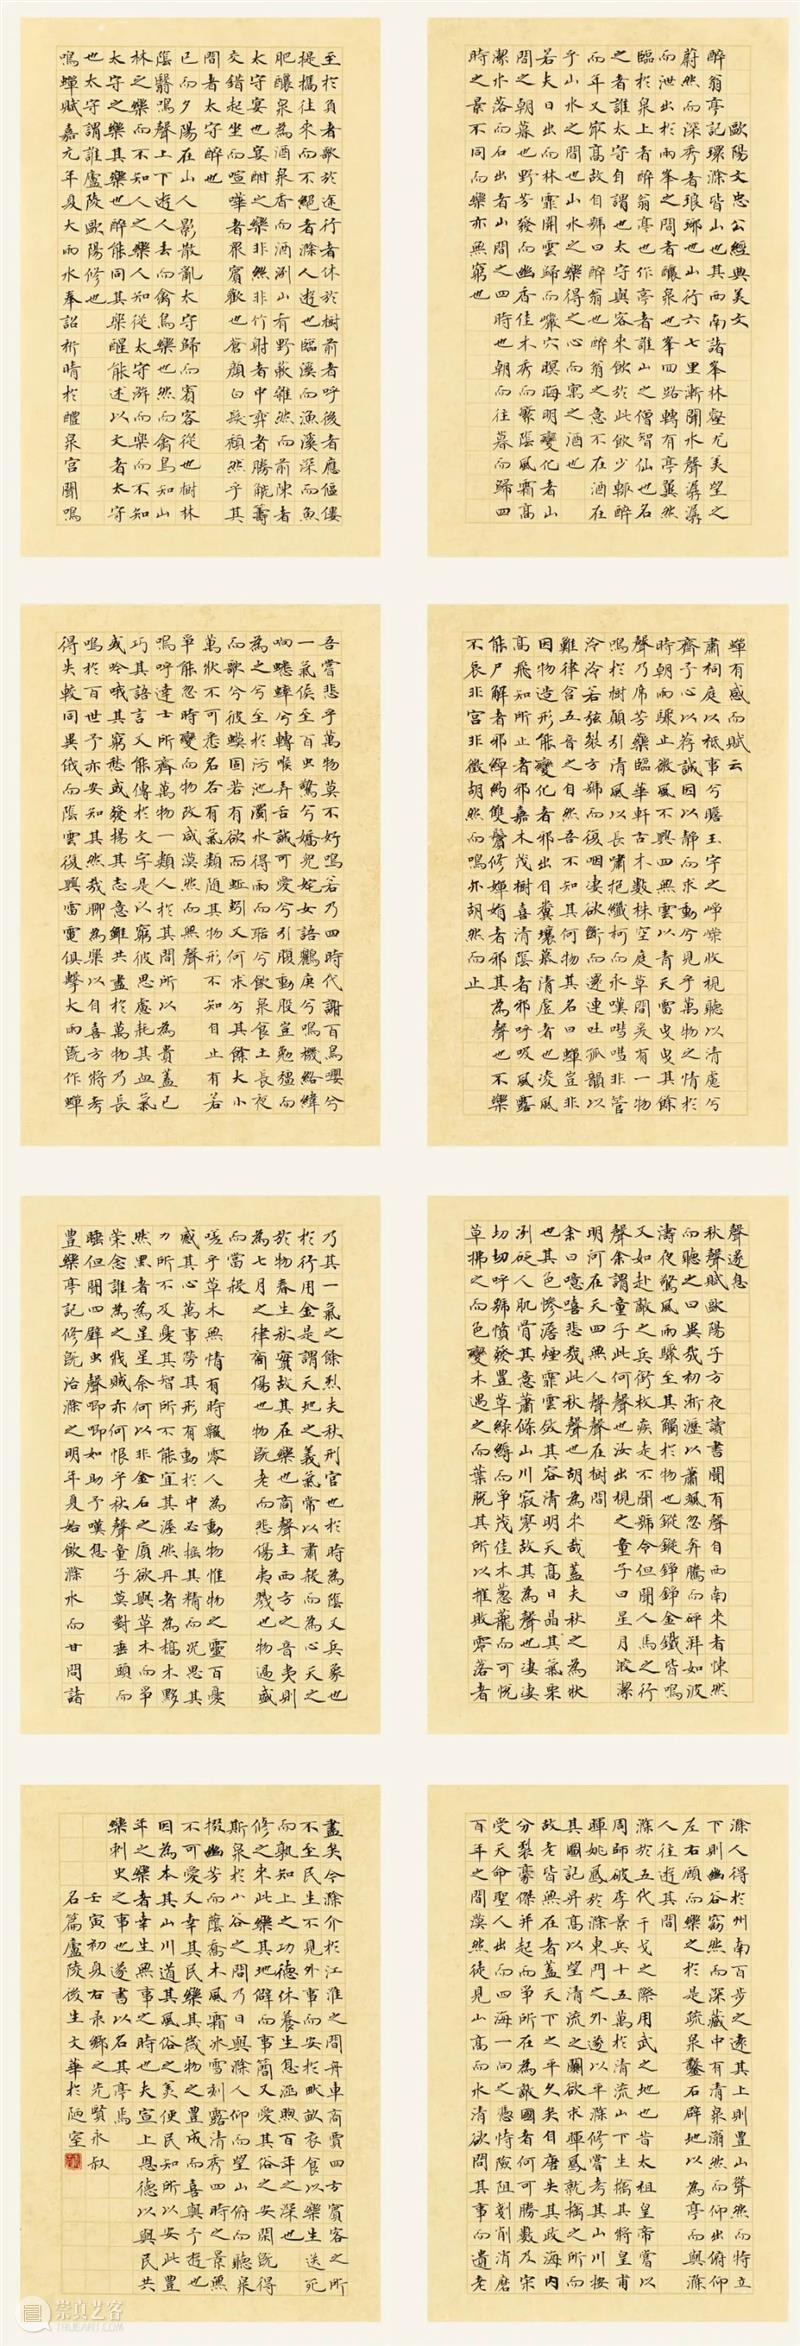 歐陽文忠公經典美文
醉翁亭記環滁皆山也其西南諸峯林壑尤美望之
蔚然而深秀者琅琊也山行六七里漸聞水聲潺潺
而泄出於兩峯之間者釀泉也峯回路轉有亭翼然
臨於泉上者醉翁亭也作亭者誰山之僧智仙也名
之者誰太守自謂也太守與客來飲於此飲少輒醉
而年又最高故自號曰醉翁也醉翁之意不在酒在
乎山水之間也山水之樂得之心而寓之酒也
若夫日出而林霏開雲歸而巖穴暝晦明變化者山
間之朝暮也野芳發而幽香佳木秀而繁陰風霜高
潔水落而石出者山間之四時也朝而往暮而歸四
時之景不同而樂亦無窮也
至於負者歌於途行者休於樹前者呼後者應傴僂
提攜往來而不絕者滁人遊也臨溪而漁溪深而魚
肥釀泉為酒泉香而酒洌山肴野蔌雜然而前陳者
太守宴也宴酣之樂非絲非竹射者中弈者勝觥籌
交錯起坐而喧嘩者眾賓歡也蒼顏白髮頹然乎其
間者太守醉也
已而夕陽在山人影散亂太守歸而賓客從也樹林
陰翳鳴聲上下遊人去而禽鳥樂也然而禽鳥知山
林之樂而不知人之樂人知從太守遊而樂而不知
太守之樂其樂也醉能同其樂醒能述以文者太守
也太守謂誰廬陵歐陽修也
鳴蟬賦嘉元年夏大雨水奉詔祈晴於醴泉宮聞鳴
蟬有感而賦云
肅祠庭以祗事兮瞻玉宇之崢嶸收視聽以清慮兮
齊予心以薦誠因以靜而求動兮見乎萬物之情於
時朝雨驟止微風不興四無雲以青天雷曳曳其餘
聲乃席芳藥臨華軒古木數株空庭草間爰有一物
鳴於樹顛引清風以長嘯抱纖柯而永嘆嘒嘒非管
泠泠若弦裂方號而復咽淒欲斷而還連吐孤韻以
難律含五音之自然吾不知其何物其名曰蟬豈非
因物造形能變化者邪出自糞壤慕清虛者也凌風
高飛知所止者邪嘉木茂樹喜清陰者邪呼吸風露
能尸解者邪綽約雙鬢修嬋娟者邪其為聲也不樂
不哀非宮非徵胡然而鳴亦胡然而止
吾嘗悲乎萬物莫不好鳴若乃四時代謝百鳥嚶兮
一氣候至百蟲驚兮嬌兒姹女語鸝庚兮鳴機絡緯
響蟋蟀兮轉喉弄舌誠可愛兮引腹動股豈勉強而
為之兮至於污池濁水得雨而聒兮飲泉食土長夜
而歌兮彼蟆固若有欲而蚯蚓又何求兮其餘大小
萬狀不可悉名各有氣類隨其物形不知自止有若
爭能忽時變而物改咸漠然而無聲
嗚呼達士所齊萬物一類人於其間所以為貴蓋已
巧其語言又能傳於文字是以窮彼思慮耗其血氣
或吟哦其窮愁或發揚其志意雖共盡於萬物乃長
鳴於百世予亦安知其然哉聊為樂以自喜方將考
得失較同異俄而陰雲復興雷電俱擊大雨既作蟬
聲遂息
秋聲賦歐陽子方夜讀書聞有聲自西南來者悚然
而聽之曰異哉初淅瀝以蕭颯忽奔騰而砰湃如波
濤夜驚風雨驟至其觸於物也鏦鏦錚錚金鐵皆鳴
又如赴敵之兵銜枚疾走不聞號令但聞人馬之行
聲余謂童子此何聲也汝出視之童子曰星月皎潔
明河在天四無人聲聲在樹間
余曰噫嘻悲哉此秋聲也胡為來哉蓋夫秋之為狀
也其色慘澹煙霏雲斂其容清明天高日晶其氣栗
冽砭人肌骨其意蕭條山川寂寥故其為聲也淒淒
切切呼號憤發豐草綠縟而爭茂佳木蔥蘢而可悅
草拂之而色變木遇之而葉脫其所以摧敗零落者
乃其一氣之餘烈夫秋刑官也於時為陰又兵象也
於行用金是謂天地之義氣常以肅殺而為心天之
於物春生秋實故其在樂也商聲主西方之音夷則
為七月之律商傷也物既老而悲傷夷戮也物過盛
而當殺
嗟乎草木無情有時飄零人為動物惟物之靈百憂
感其心萬事勞其形有動於中必搖其精而況思其
力所不及憂其智所不能宜其渥然丹者為槁木黟
然黑者為星星奈何以非金石之質欲與草木而爭
榮念誰為之戕賊亦何恨乎秋聲童子莫對垂頭而
睡但聞四壁蟲聲唧唧如助予嘆息
豐樂亭記修既治滁之明年夏始飲滁水而甘問諸
滁人得於州南百步之遠其上則豐山聳然而特立
下則幽谷窈然而深藏中有清泉滃然而仰出俯仰
左右顧而樂之於是疏泉鑿石闢地以為亭而與滁
人往遊其間
滁於五代干戈之際用武之地也昔太祖皇帝嘗以
周師破李景兵十五萬於清流山下生擒其將皇甫
暉姚鳳於滁東門之外遂以平滁修嘗考其山川按
其圖記昇高以望清流之關欲求暉鳳就擒之所而
故老皆無在者蓋天下之平久矣自唐失其政海內
分裂豪傑並起而爭所在為敵國者何可勝數及宋
受天命聖人出而四海一向之憑恃險阻剗削消磨
百年之間漠然徒見山高而水清欲問其事而遺老
盡矣今滁介於江淮之間舟車商賈四方賓客之所
不至民生不見外事而安於畎畝衣食以樂生送死
而孰知上之功德休養生息涵煦百年之深也
修之來此樂其地僻而事簡又愛其俗之安閒既得
斯泉於山谷之間乃日與滁人仰而望山俯而聽泉
掇幽芳而蔭喬木風霜冰雪刻露清秀四時之景無
不可愛又幸其民樂其歲物之豐成而喜與予遊也
因為本其山川道其風俗之美使民知所以安此豐
年之樂者幸生無事之時也夫宣上恩德以與民共
樂刺史之事也遂書以名其亭焉
壬寅初夏右录鄉之先賢永叔
名篇廬陵後生文華於陋室
崇真艺客